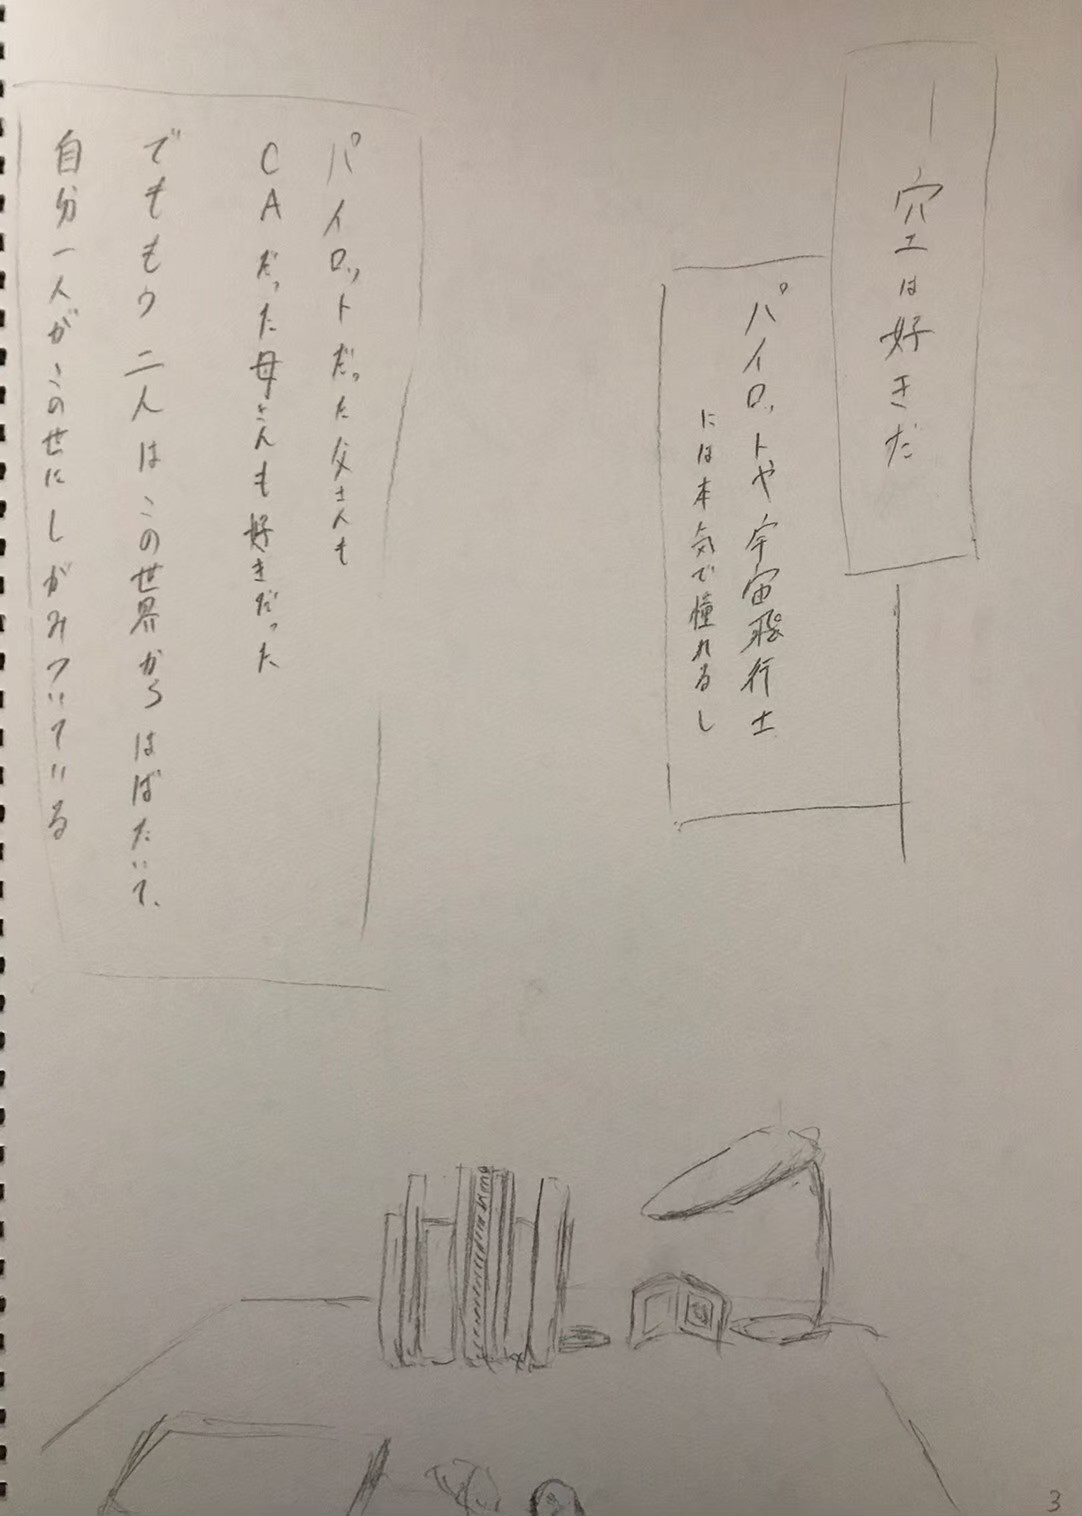 ──空は好きだ
パイロットや宇宙飛行士
には本気で憧れるし
パイロットだった父さんも
CAだった母さんも好きだった
でももう二人はこの世界からはばたいて、
自分一人がこの世にしがみついている
3